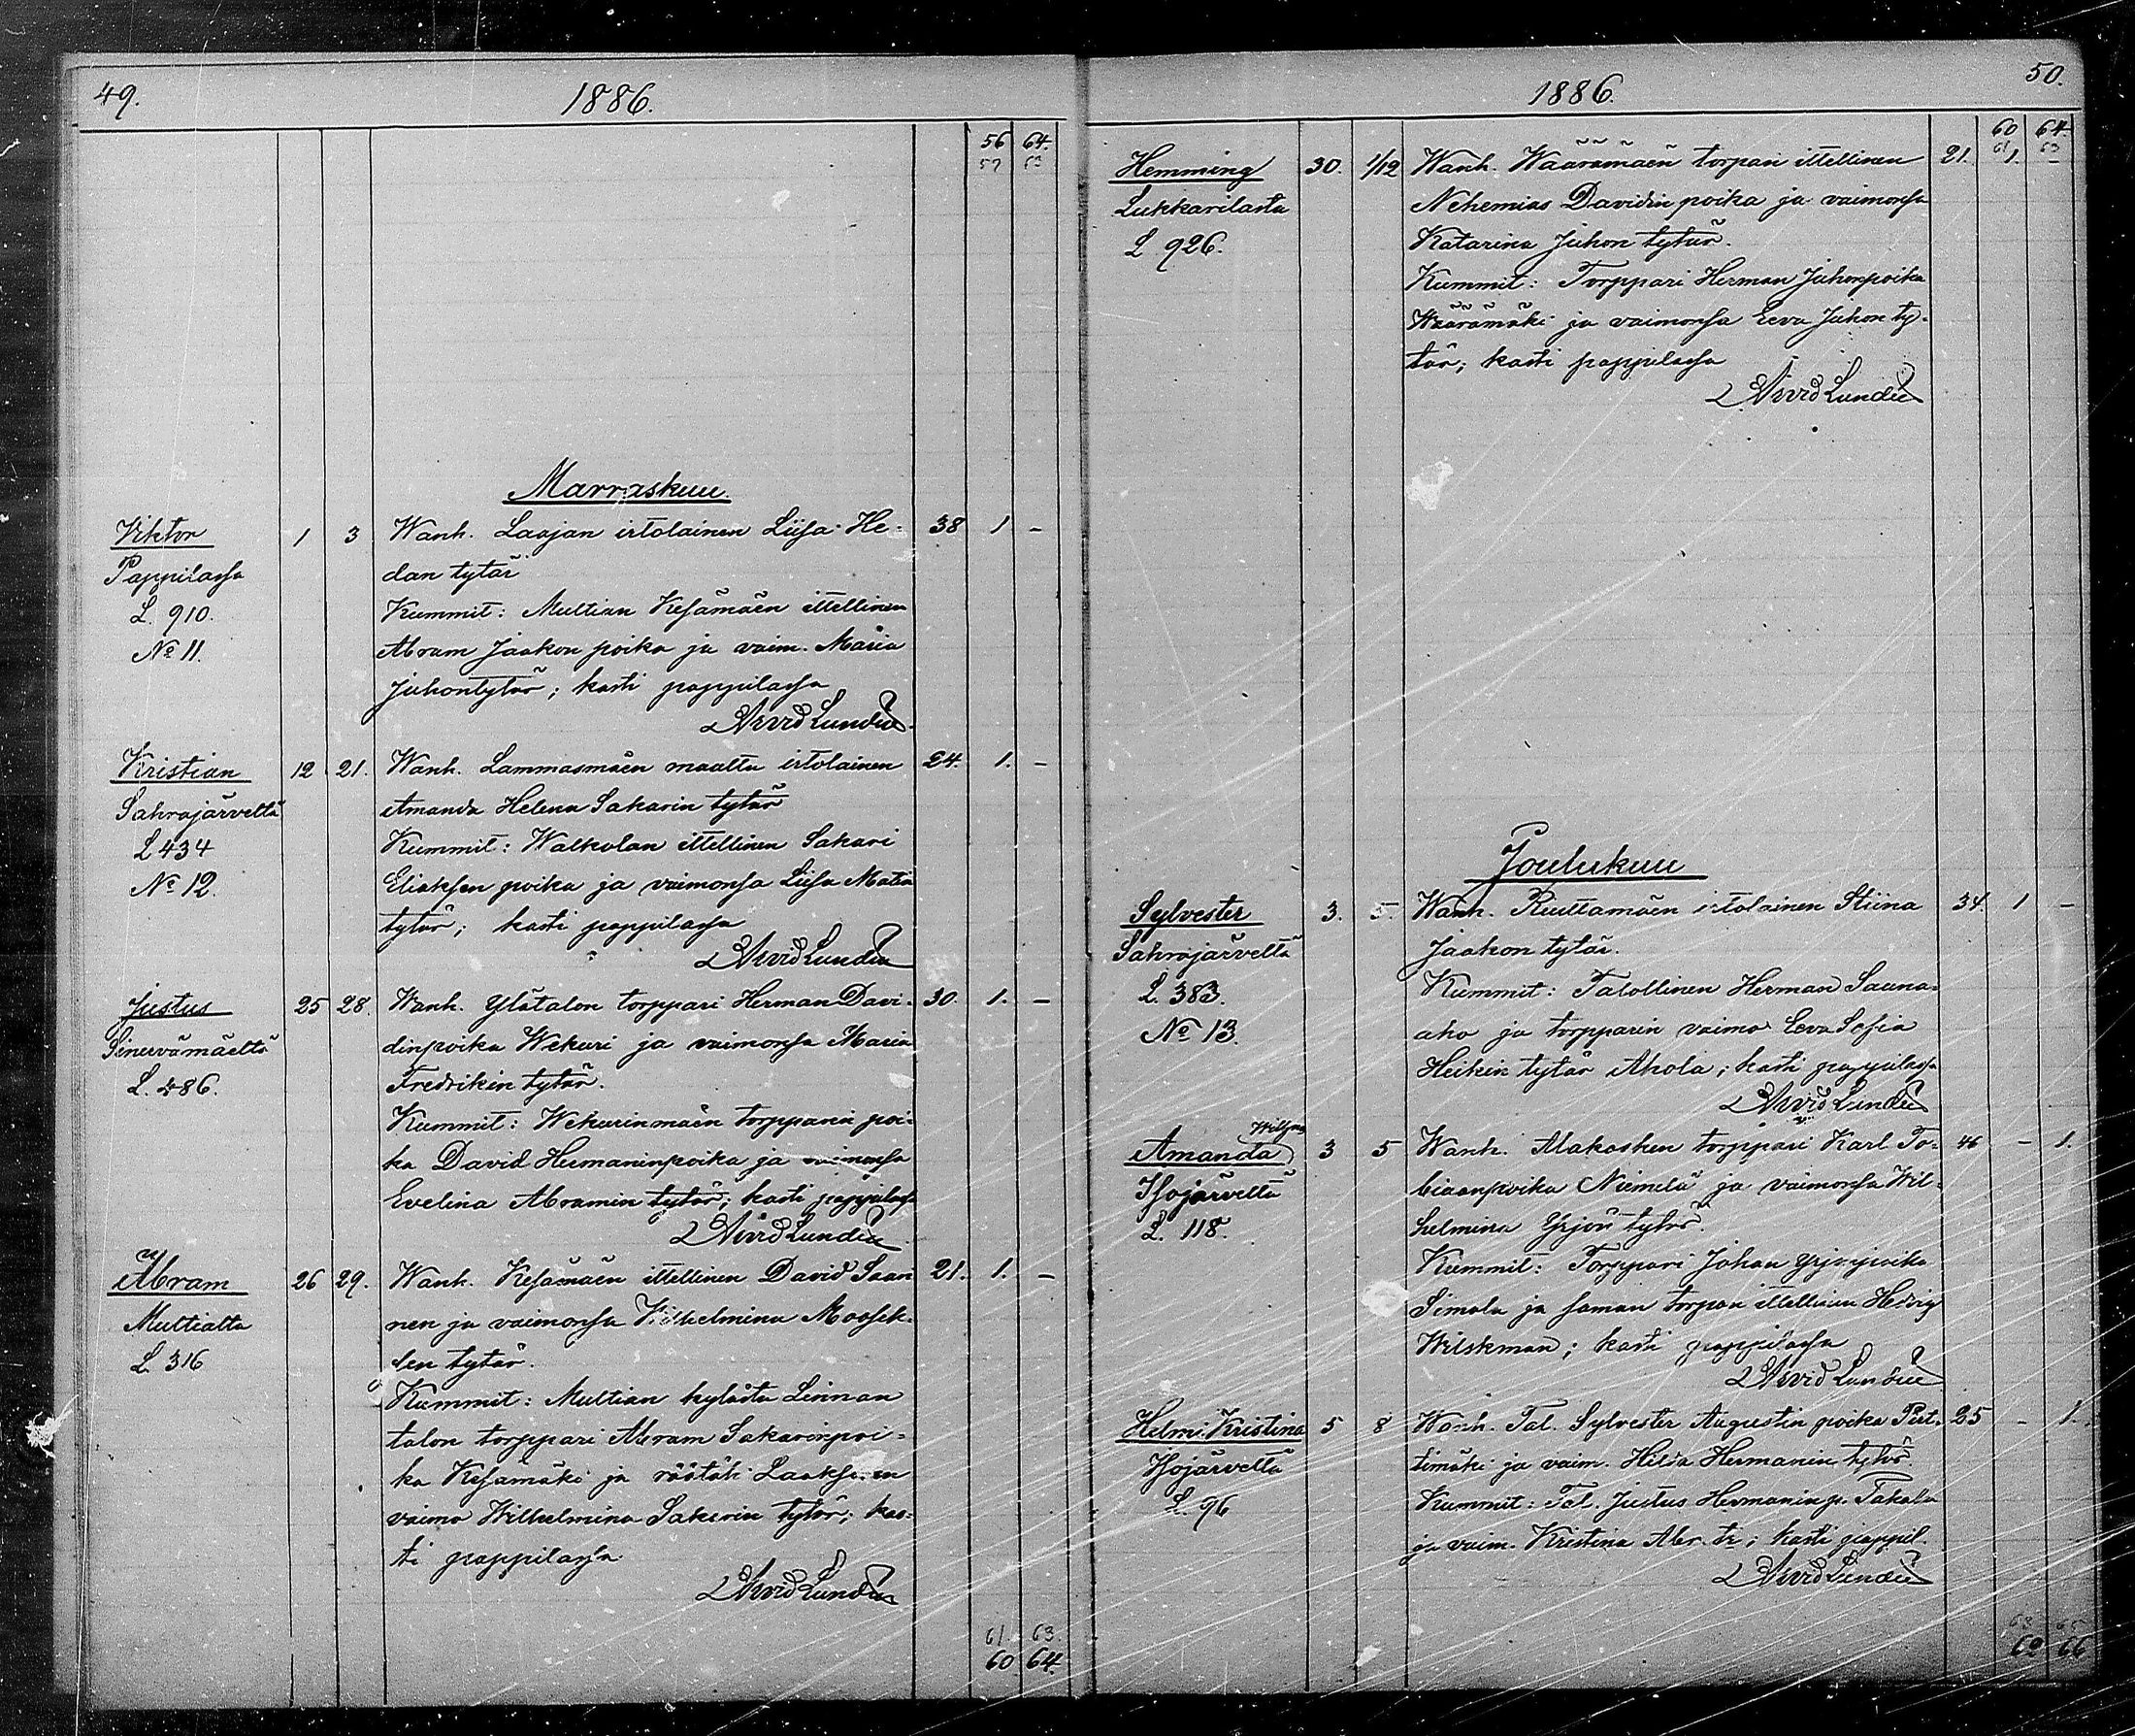 49.
1886.
56 64.
57 63
Marraskuu.
Viktor 1 3 Wanh. Laajan irtolainen Liisa He- 38 1 –
Pappilassa dan tytär
L. 910. Kummit: Multian Kesämäen ittellinen
No 11. Abram Jaakon poika ja vaim. Maria
Juhontytär; kasti pappilassa
Arvid Lundén
Kristian 12 21. Wanh. Lammasmäen maalta irtolainen 24. 1. –
Sahrajärveltä Amanda Helena Sakarin tytär
L 434 Kummit: Walkolan ittellinen Sakari
No 12. Eliaksen poika ja vaimonsa Liisa Matin
tytär; kasti pappilassa
Arvid Lundén
Justus 25 28. Wanh. Ylätalon torppari Herman Davi- 30. 1. –
Sinervämäeltä dinpoika Wekuri ja vaimonsa Maria
L. 486. Fredrikin tytär.
Kummit: Wekurinmäen torpparin poi-
ka David Hermaninpoika ja vaimonsa
Evelina Abramin tytär; kasti pappilassa
Arvid Lundén
Abram 26 29. Wanh. Kesämäen ittellinen David Saari 21. 1. –
Multialta nen ja vaimonsa Wilhelmina Moosek-
L. 316 sen tytär.
Kummit: Multian kylästä Linnan
talon torppari Abram Sakarinpoi-
ka Kesämäki ja räätäli Laaksosen
vaimo Wilhelmina Sakarin tytär; kas-
ti pappilassa
Arvid Lundén
61. 63.
60 64.
50.
1886.
60 64.
61 63
Hemming 30. 1/12 Wanh. Wäärämäen torpan ittellinen 21. 1. –
Lukkarilasta Nehemias Davidin poika ja vaimonsa
L 926. Katarina Juhon tytär.
Kummit: Torppari Herman Juhonpoika
Wäärämäki ja vaimonsa Eeva Juhon ty-
tär; kasti pappilassa
Arvid Lundén
Joulukuu
Sylvester 3. 5. Wanh. Riuttamäen irtolainen Stiina 34. 1 –
Sahrajärveltä Jaakon tytär.
L. 383. Kummit: Talollinen Herman Sauna-
No 13. aho ja torpparin vaimo Eeva Sofia
Heikin tytär Ahola; kasti pappilassa
Arvid Lundén
Amanda 3 5 Wanh. Alakosken torppari Karl To- 46 – 1.
Isojärveltä biaanpoika Niemelä ja vaimonsa Wil-
L. 118. helmina Yrjön tytär.
Kummit: Torppari Johan Yrjönpoika
Simola ja saman torpan ittellinen Hedvig
Wilskman; kasti pappilassa
Arvid Lundén
Helmi Kristina 5 8 Wanh. Tal. Sylvester Augustin poika Put- 25 – 1.
Isojärveltä timäki ja vaim. Hilda Hermanin tytär
L. 96 Kummit: Tal. Justus Hermanin p. Takala
ja vaim. Kristina Abr. tr; kasti pappil.
Arvid Lundén
63 65
62 66